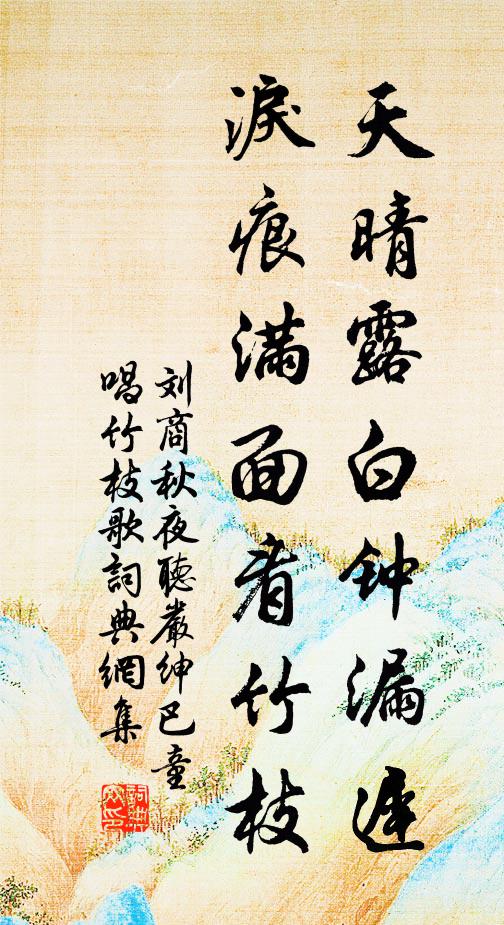 天晴露白钟漏迟
淚痕满面看竹枝
刘商秋夜聽嚴绅巴童
唱竹枝歌詞典網集